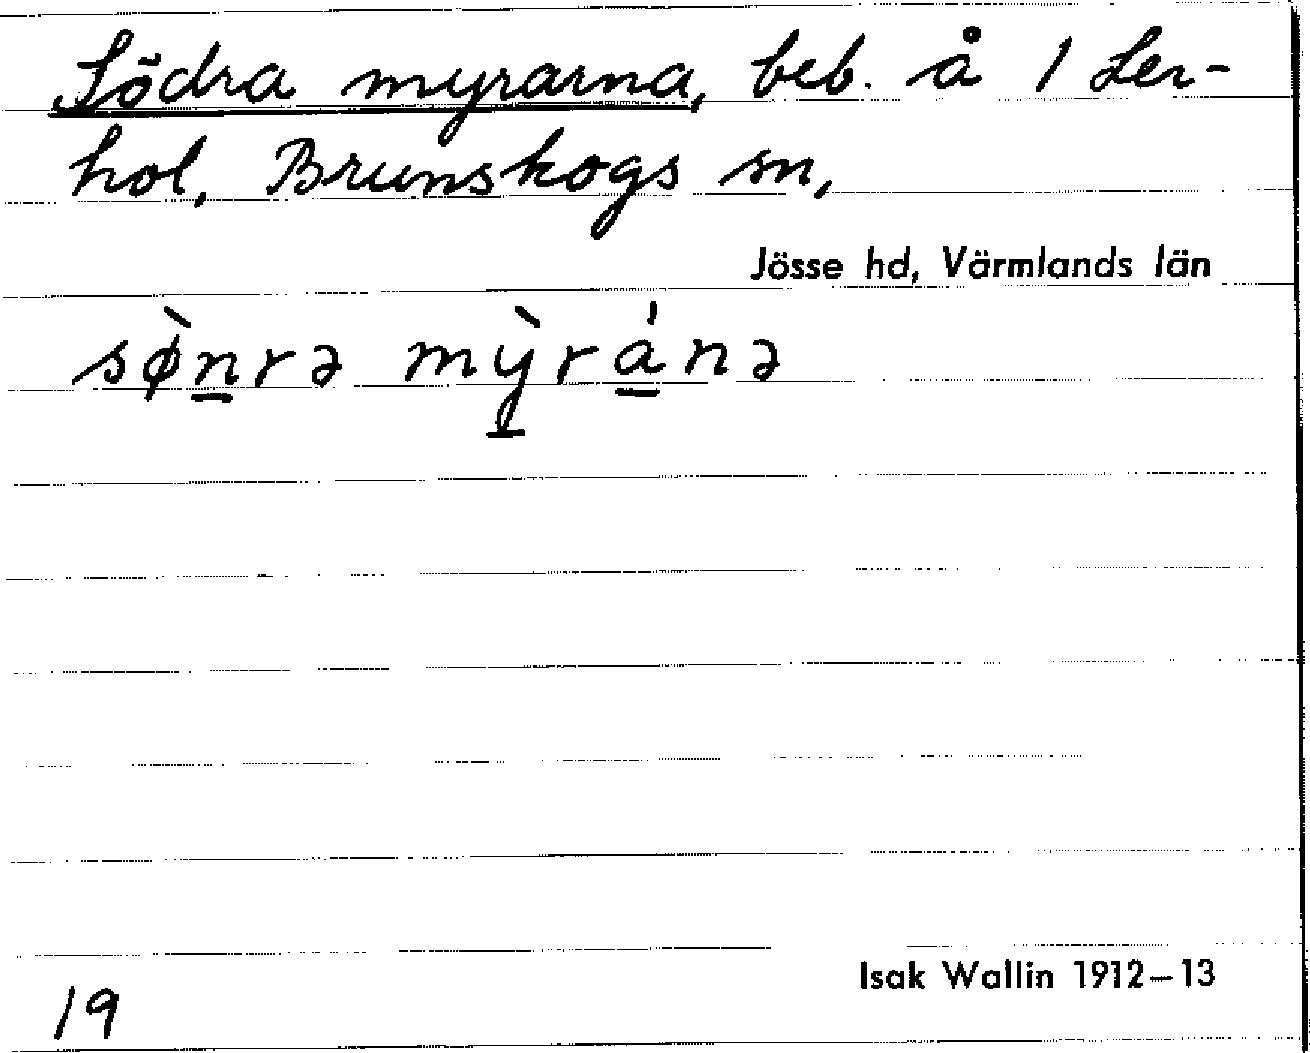 Södra myrarna, beb. å 1 Ler-
hol, Brunskogs sn,
Jösse hd, Värmlands län
sø̀n̲rə mỳ̲rá̲nə
Isak Wallin 1912–13
19